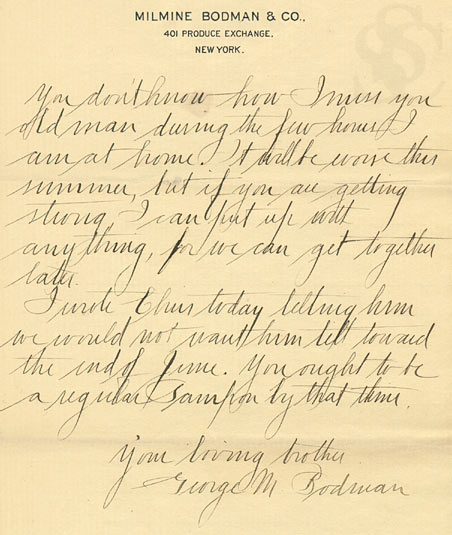 MILMINE BODMAN & CO.,
401 PRODUCE EXCHANGE,
NEW YORK.
You don't know how I miss you
old man during the few hours I
am at home. It will be worse this
summer, but if you are getting
strong I can put up with
anything, for we can get together
later.
I wrote Chris today telling him
we would not want him till toward
the end of June. You ought to be
a regular Sampson by that time.
Your loving brother
George M. Bodman